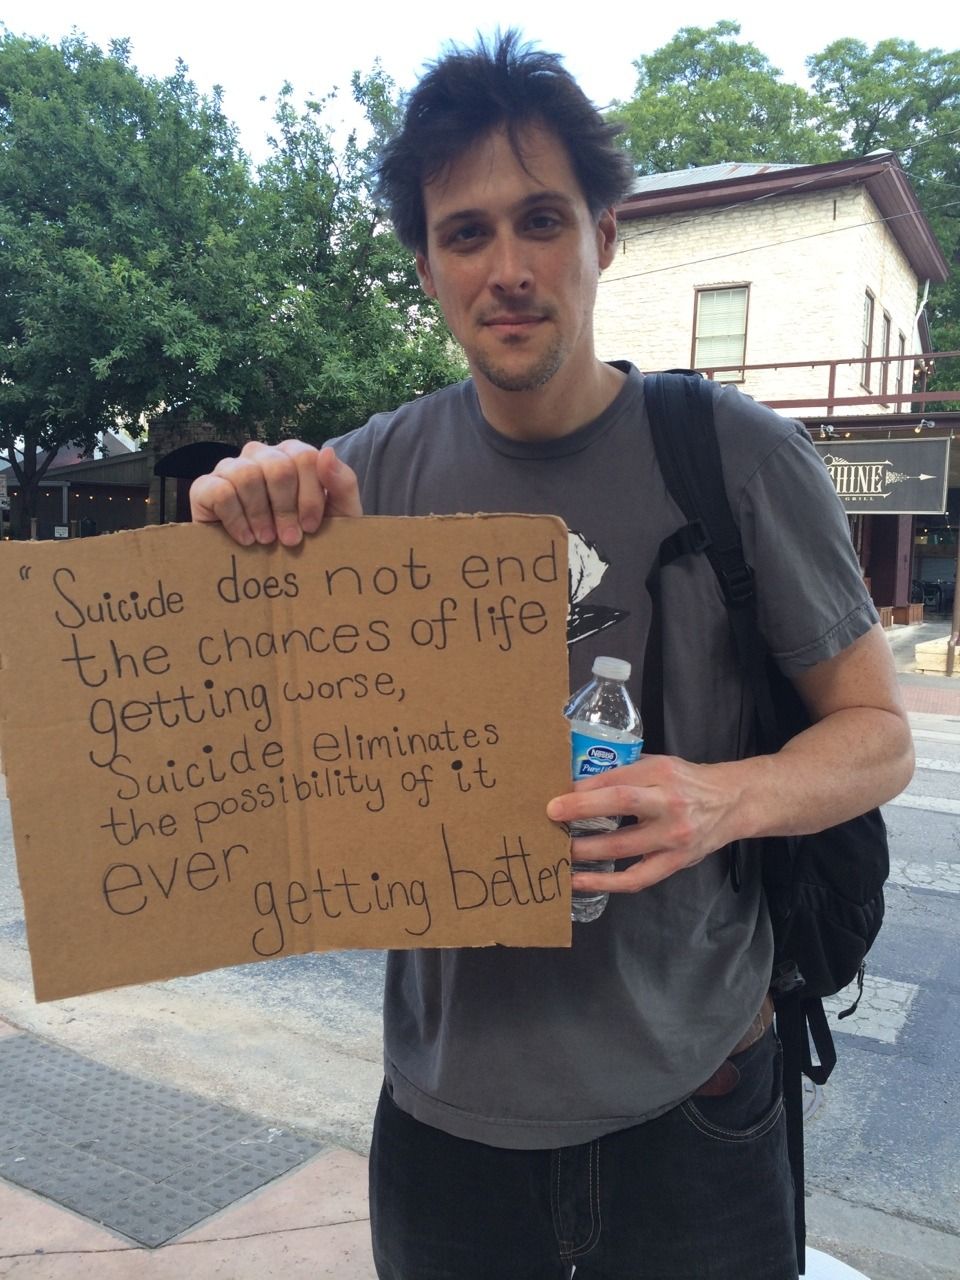 “Suicide does not end
the chances of life
getting worse,
Suicide eliminates
the possibility of it
ever getting better
Nestle
Pure Life
HINE
GRILL